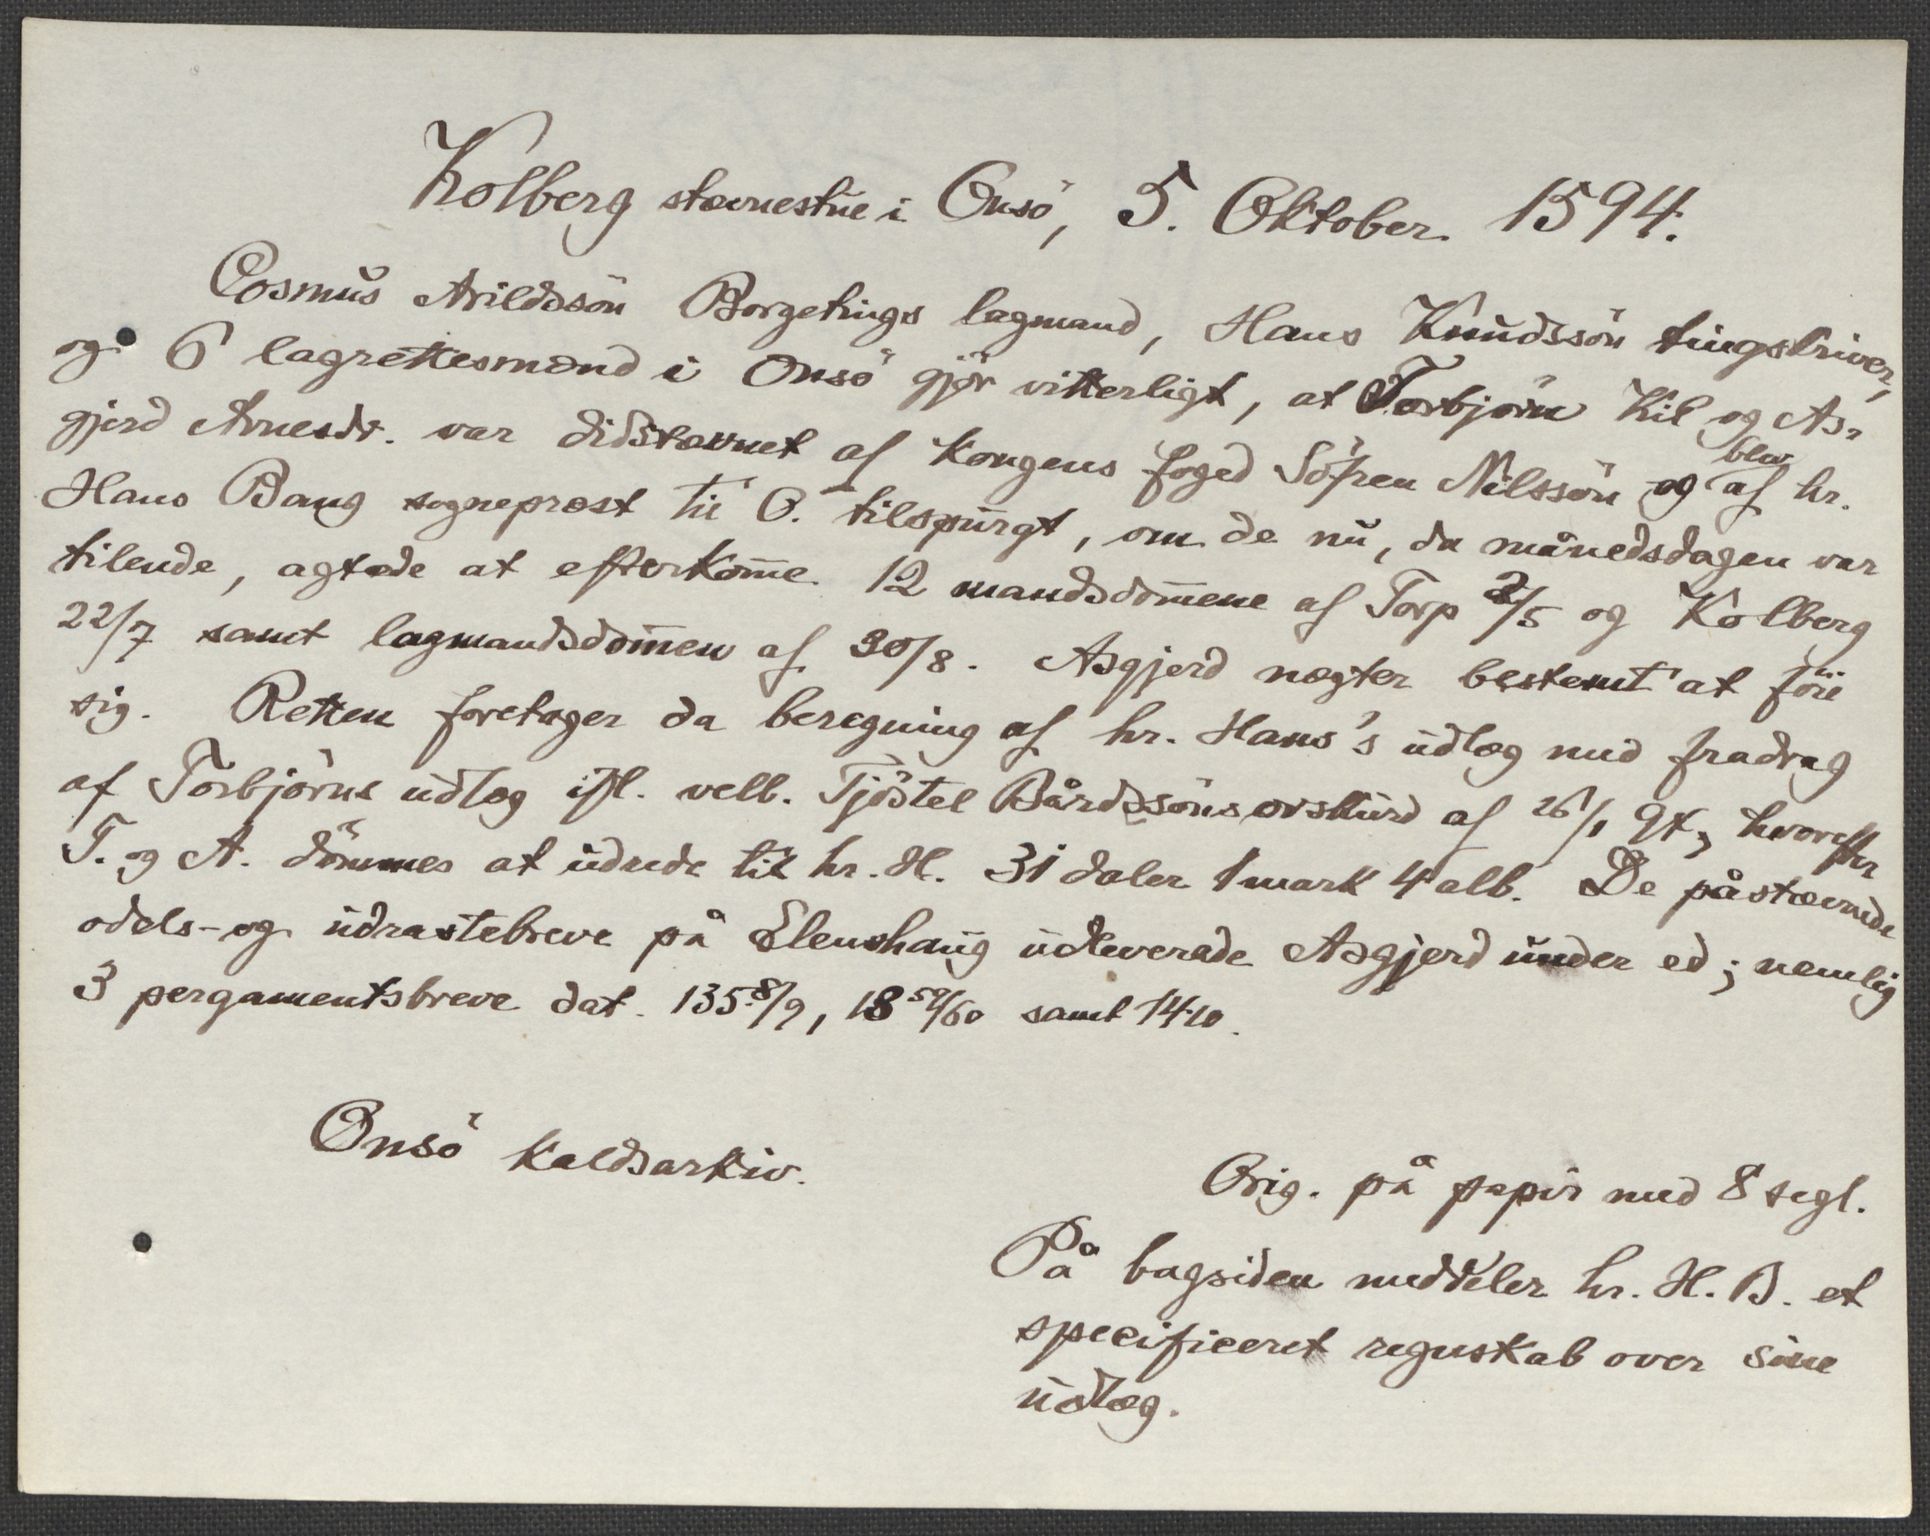 Kolberg stævnestue i Onsö, 5. Oktober 1594.
Cosmus Arildssön Borgetings lagmand, Hans Knudssön tingskriver,
og 6 lagrettesmænd i Onsö gjör vitterligt, at Torbjörn Kil og As-
gjerd Arnesdr. var didstævnet af kongens foged Sören Nilssön og blev af hr.
Hans Bang sogneprest til O. tilspurgt, om de nu, da månedsdagen var
tilende, agtede at efterkom̄e 12 mandsdom̄ene af Torp 2/5 og Kolberg
22/7 samt lagmandsdom̄en af 30/8. Asgjerd nægter bestemt at föie
sig. Retten foretager da beregning af hr. Hans's udlæg med fradrag
af Torbjörns udlæg ifl. velb. Tjöstel Bårdssöns orskurd af 26/1 94, hvorefter
T. og A. dömmes at udrede til hr. H. 31 daler 1 mark 4 alb. De påstævnede
odels- og udrastebreve på Elenshaug udleverede Asgjerd under ed; nemlig
3 pergamentsbreve dat. 1358/9, 1359/60 samt 1410.
Onsö kaldsarkiv.
Orig. på papir med 8 segl.
På bagsiden meddeler hr. H. B. et
specificeret regnskab over sine
udlæg.